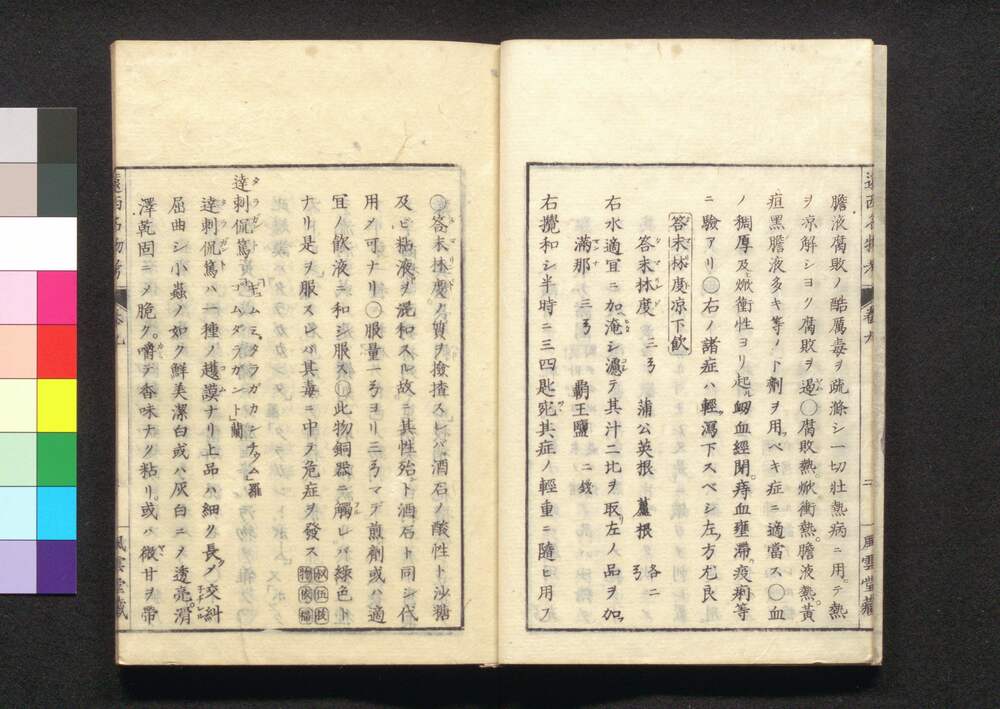 膽液腐敗ノ酷厲毒ヲ疏滌シ一切壯熱病ニ用テ熱
ヲ涼解シヨク腐敗ヲ遏ム○腐敗熱焮衝熱膽液熱黃
疸黑膽液多キ等ノ下劑ヲ用ベキ症ニ適當ス○血
ノ稠厚及焮衝性ヨリ起ル衂血經閉痔血壅滯疫痢等
ニ驗アリ○右ノ諸症ハ輕瀉下スベシ左方尤良
答末林度涼下飲
答末林度 二弓 蒲公英根 蘆根 各二弓
滿那 三弓 覇王鹽 二錢
右水適宜ニ加淹シ濾テ其汁二比ヲ取左ノ品ヲ加
右攪和シ半時ニ三四匙宛其症ノ輕重ニ隨ヒ用フ
遠西名物考 卷九 二 風雲堂藏
○答末林度ノ質ヲ撿搚スレバ酒石ノ酸性ト沙糖
及ビ粘液ヲ混和スル故ニ其性殆ド酒石ト同シ代
用メ可ナリ○服量一弓ヨリ三弓マデ煎劑或ハ適
宜ノ飲液ニ和シ服ス○此物銅器ニ觸レバ綠色ト
ナリ是ヲ服スレバ其毒ニ中テ危症ヲ發ス
達刺侃篤 「ギュムミ、タラガカンチュム」羅 「ゴムダラガント」蘭
達刺侃篤ハ一種ノ越謨ナリ上品ハ細ク長ク交糾
屈曲シ小蟲ノ如ク鮮美潔白或ハ灰白ニメ透亮滑
澤乾固ニメ脆ク嚼テ香味ナク粘リ或ハ微甘ヲ帶
遠西名物考 卷九 風雲堂藏